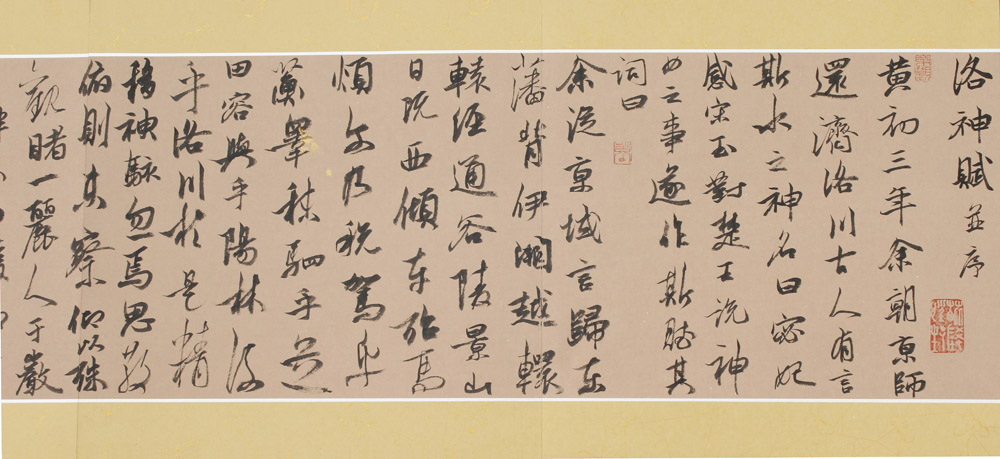 洛神賦並序
黄初三年余朝京師
還濟洛川古人有言
斯水之神名曰宓妃
感宋玉對楚王說神
女之事遂作斯賦其
詞曰
余從京域言歸東
藩背伊闕越轘
轅經通谷陵景山
日既西傾車殆馬
煩尔乃稅駕乎
蘅皋秣駟乎芝
田容與乎陽林流
乎洛川於是精
移神駭忽焉思散
俯則未察仰以殊
觀睹一麗人于巖